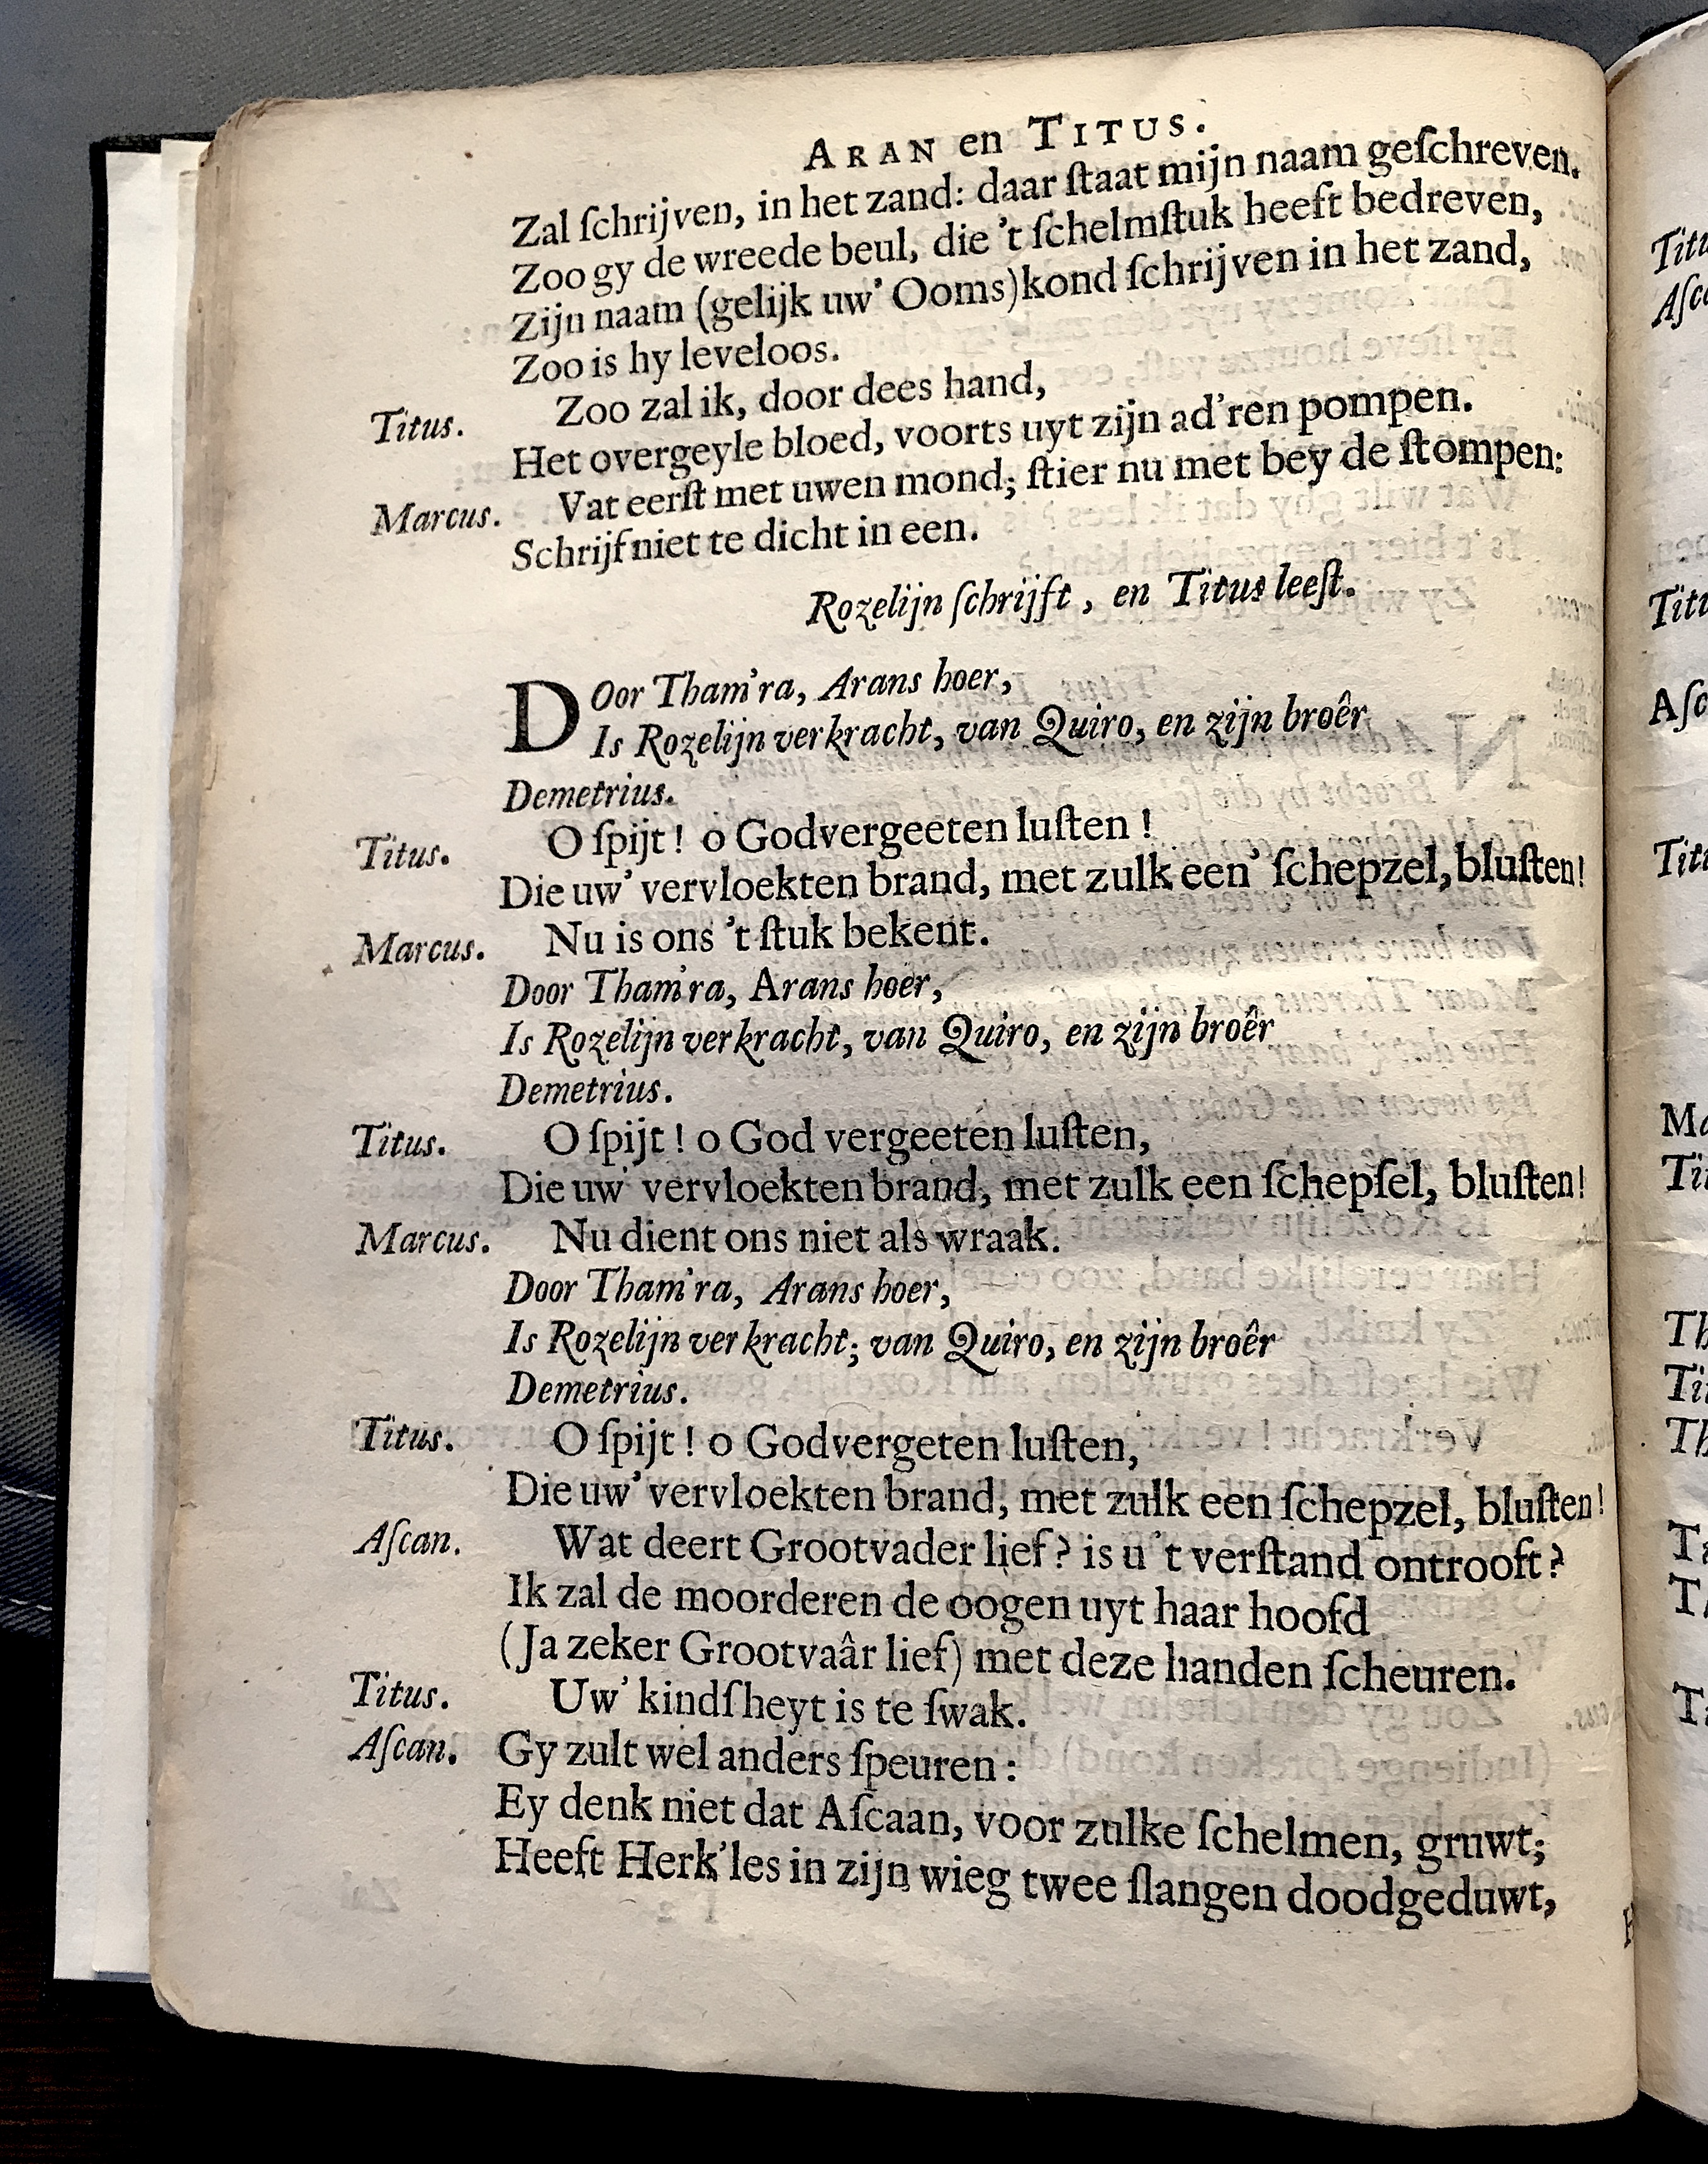 ARAN en TITUS.
Zal ſchrijven, in het zand: daar ſtaat mijn naam geſchreven.
Zoo gy de wreede beul, die 't ſchelmſtuk heeft bedreven,
Zijn naam (gelijk uw' Ooms) kond ſchrijven in het zand,
Zoo is hy leveloos.
Titus. Zoo zal ik, door dees hand,
Het overgeyle bloed, voorts uyt zijn ad'ren pompen.
Marcus. Vat eerſt met uwen mond; ſtier nu met bey de ſtompen:
Schrijf niet te dicht in een.
Rozelijn ſchrijft, en Titus leeſt.
DOor Tham'ra, Arans hoer,
Is Rozelijn verkracht, van Quiro, en zijn broêr
Demetrius.
Titus. O ſpijt! o Godvergeeten luſten!
Die uw' vervloekten brand, met zulk een' ſchepzel, bluſten!
Marcus. Nu is ons 't ſtuk bekent.
Door Tham'ra, Arans hoer,
Is Rozelijn verkracht, van Quiro, en zijn broêr
Demetrius.
Titus. O ſpijt! o God vergeeten luſten,
Die uw' vervloekten brand, met zulk een ſchepſel, bluſten!
Marcus. Nu dient ons niet als wraak.
Door Tham'ra, Arans hoer,
Is Rozelijn verkracht; van Quiro, en zijn broêr
Demetrius.
Titus. O ſpijt! o Godvergeten luſten,
Die uw' vervloekten brand, met zulk een ſchepzel, bluſten!
Aſcan. Wat deert Grootvader lief? is u 't verſtand ontrooft?
Ik zal de moorderen de oogen uyt haar hoofd
(Ja zeker Grootvaâr lief) met deze handen ſcheuren.
Titus. Uw' kindſheyt is te ſwak.
Aſcan. Gy zult wel anders ſpeuren:
Ey denk niet dat Aſcaan, voor zulke ſchelmen, gruwt;
Heeft Herk'les in zijn wieg twee ſlangen doodgeduwt,